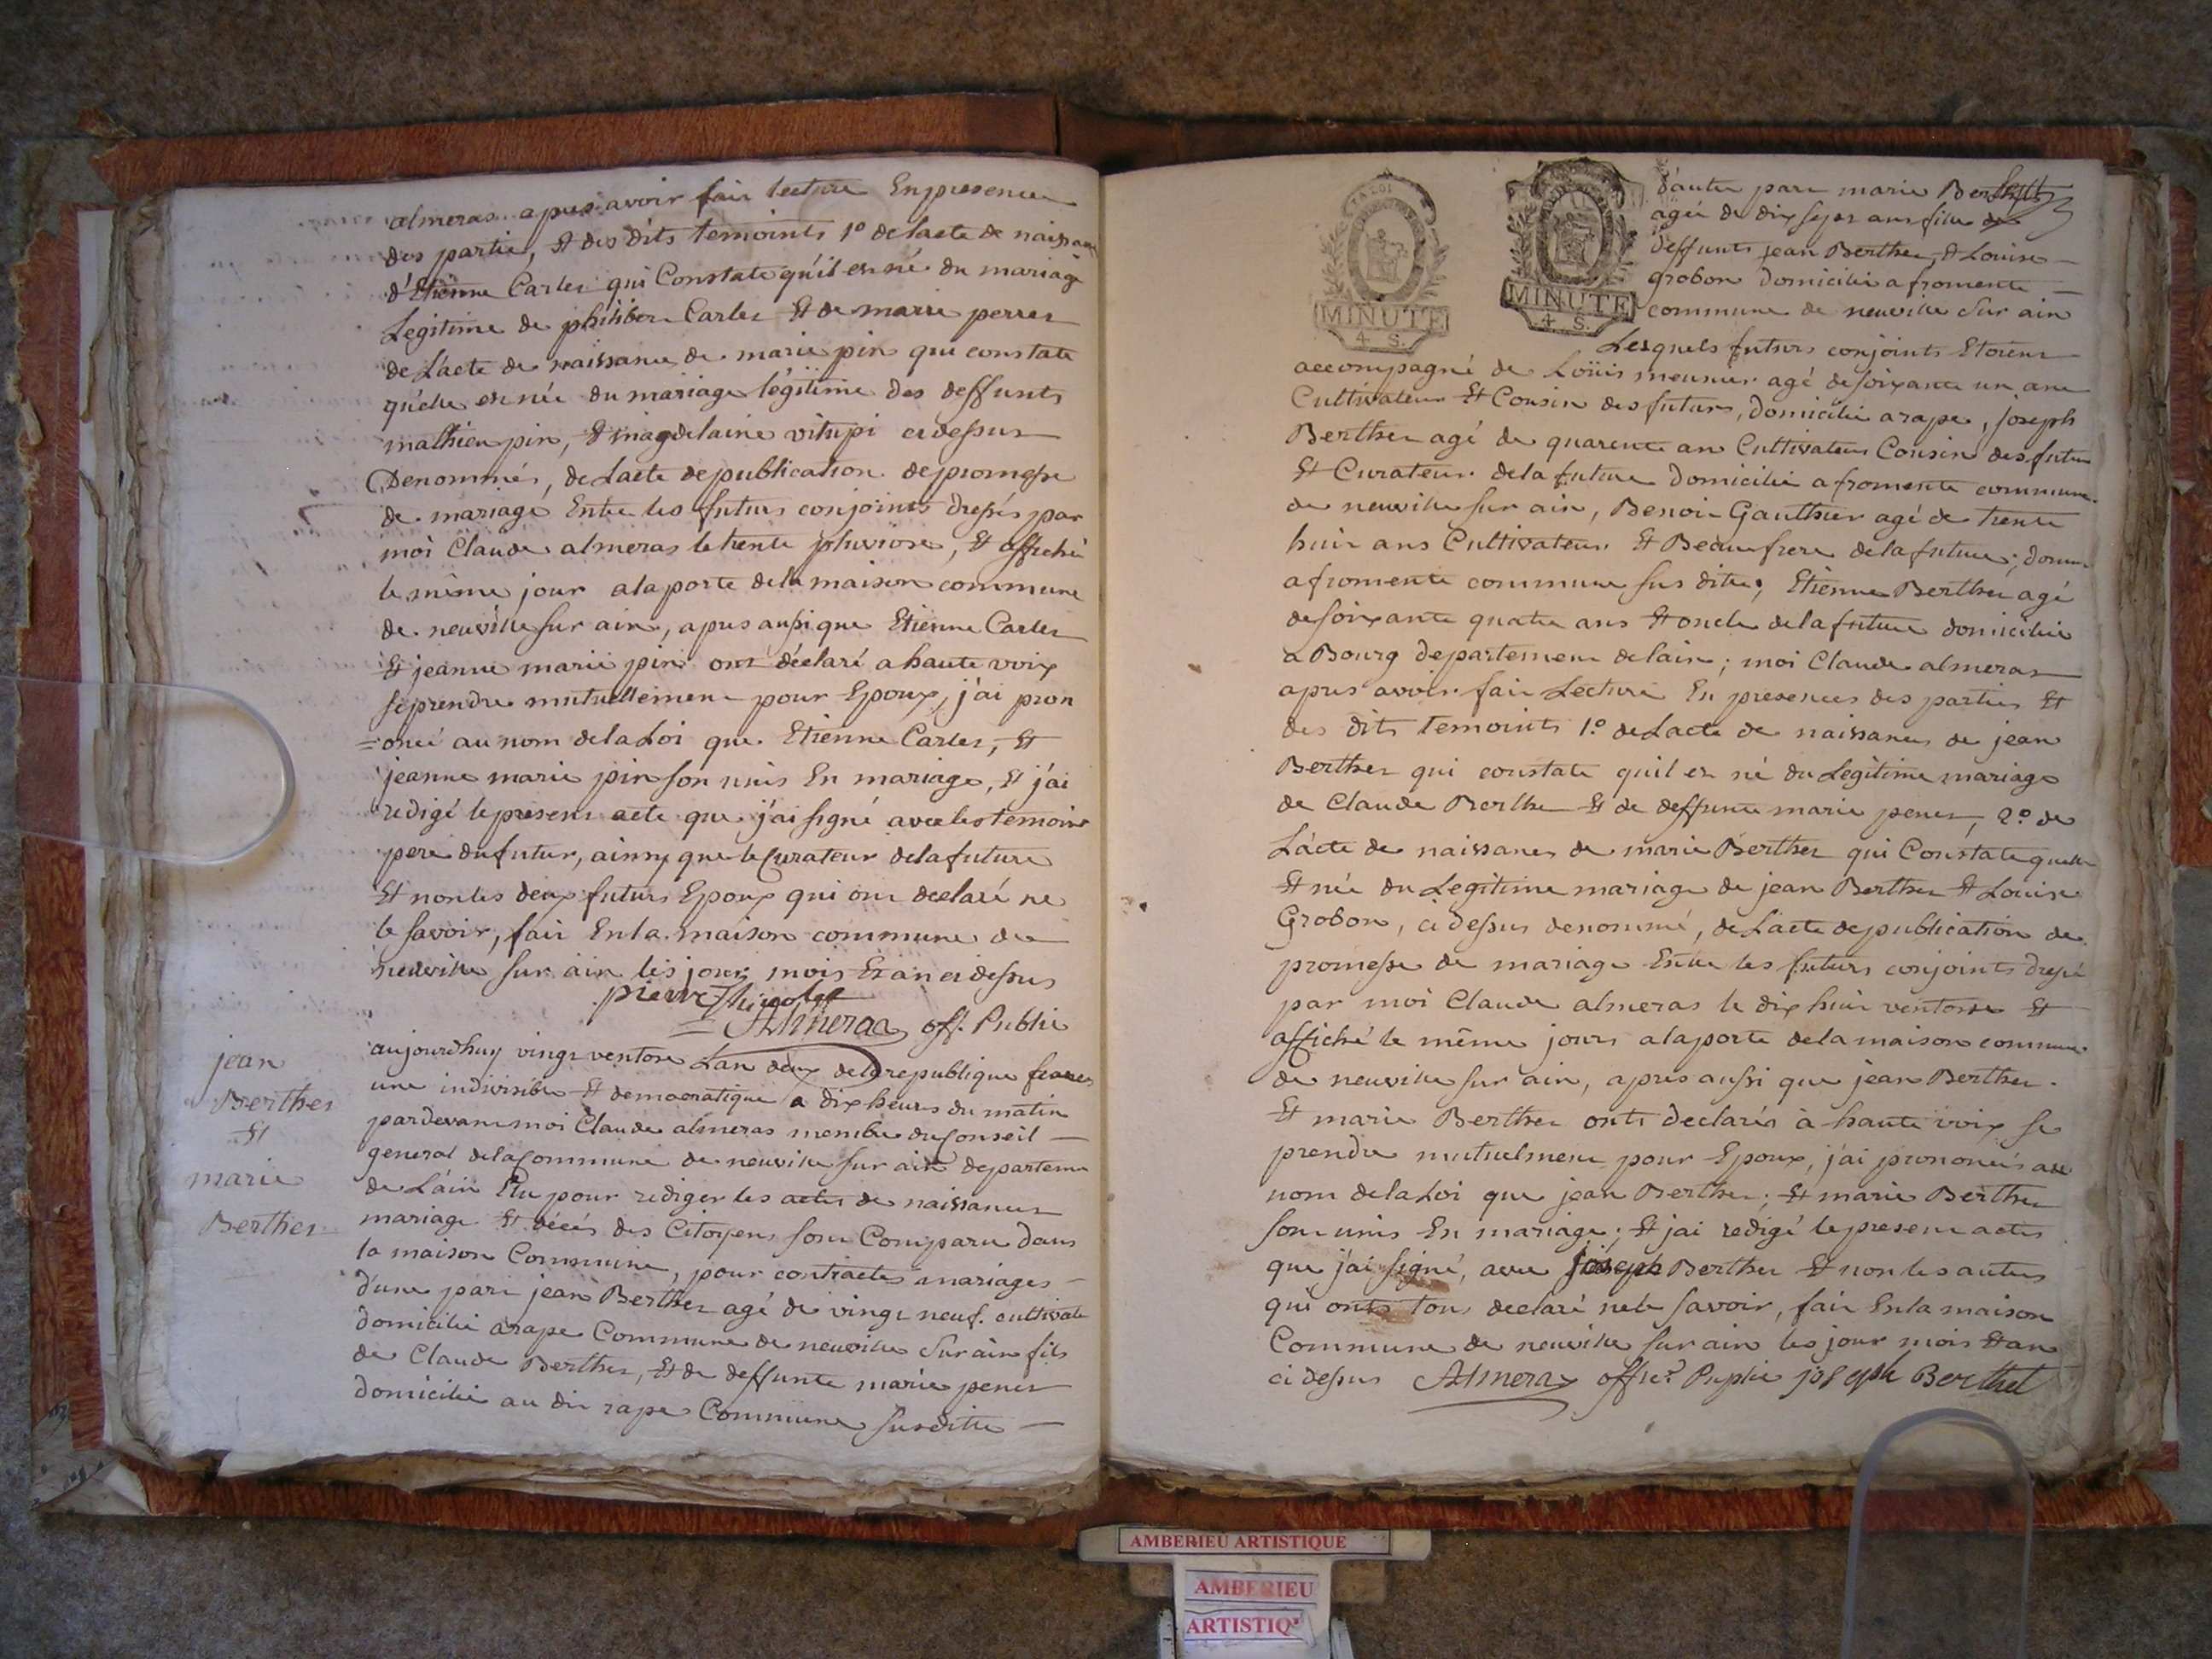 almeras apres avoir fait lecture En presence
des partie, Et des dits temoints 1º de lacte de naissance
d'Etienne Carlet qui Constate qu'il est né du mariage
Legitime de philibert Carlet Et de marie perret
de L'acte de naissance de marie pin qui constate
qu'elle est née du mariage légitime des deffunts
mathieu pin, Et magdelaine vitupi ci dessus
Denommés, de Lacte de publication de promesse
de mariage Entre les futurs conjoints dressés par
moi Claude almeras le trente pluviose, Et affiché
le même jour a la porte de la maison commune
de neuville sur ain, apres aussi que Etienne Carlet
Et jeanne marie pin ont déclaré a haute voix
se prendre mutuellement pour Epoux, j'ai pron
=oncé au nom de la Loi que Etienne Carlet, Et
jeanne marie pin sont unis En mariage, Et j'ai
redigé le present acte que j'ai signé avec les temoins
pere du futur, ainsy que le Curateur de la future
Et non les deux futurs Epoux qui ont declaré ne
le savoir, fait En la maison commune de
neuville sur ain les jour mois Et an ci dessus
pierre
Almeras off. Public
jean
Berthet
Et
marie
Berthet
aujourdhuy vingt ventose Lan deux de la republique
une indivisible Et democratique a dix heures du matin
pardevant moi Claude almeras membre du Conseil
general de la Commune de neuville sur ain departement
de L'ain Elu pour rediger les actes de naissances
mariage Et décés des Citoyens sont Comparu dans
la maison Commune, pour contracter mariages
d'une part jean Berthet agé de vingt neuf. cultivate
domicilié a rape Commune de neuville Sur ain fils
de Claude Berthet, Et de deffunte marie peret
domicilié au dit rape Commune susditte
TA LOI
MINUTE
4 S.
MINUTE
4 S.
d'autre part marie Berthet
agée de dix sept ans fille de
deffunts jean Berthet, Et Louise
grobon domicilié a fromente
commune de neuville sur ain
Lesquels futurs conjoints Etoient
accompagné de Loüis meunier agé de soixante un ans
Cultivateur Et Cousin des futurs, domicilié a rape, joseph
Berthet agé de quarente ans Cultivateur Cousin des futurs
Et Curateur de la future domicilié a fromente commune
de neuville sur ain, Benoit Gauthier agé de trente
huit ans Cultivateur Et Beaufrere de la future; domi
a fromente commune sus ditte; Etienne Berthet agé
de soixante quatre ans Et oncle de la future domicilié
a Bourg departement de lain; moi Claude almeras
apres avoir fait Lecture En presences des parties Et
des dits temoints 1º de Lacte de naissance de jean
Berthet qui constate quil est né du Legitime mariage
de Claude Berthet Et de deffunte marie peret, 2º de
L'acte de naissance de marie Berthet qui Constate quelle
Et née du Legitime mariage de jean Berthet Et Louise
Grobon, ci dessus denommé, de L'acte de publication de
promesse de mariage Entre les futurs conjoints dressé
par moi Claude almeras le dix huit ventose Et
affiché le même jours a la porte de la maison commune
de neuville sur ain, apres aussi que jean Berthet
Et marie Berthet onts declarés à haute voix se
prendre mutuelment pour Epoux, j'ai prononcés au
nom de la Loi que jean Berthet; Et marie Berthet
sont unis En mariage; Et jai redigé le present actes
que j'ai signé, avec joseph Berthet Et non les autres
qui onts tous declaré ne le savoir, fait En la maison
Commune de neuville sur ain les jour mois Et an
ci dessus Almeras offier Puplic joseph Berthet
AMBERIEU ARTISTIQUE
AMBERIEU
ARTISTIQ